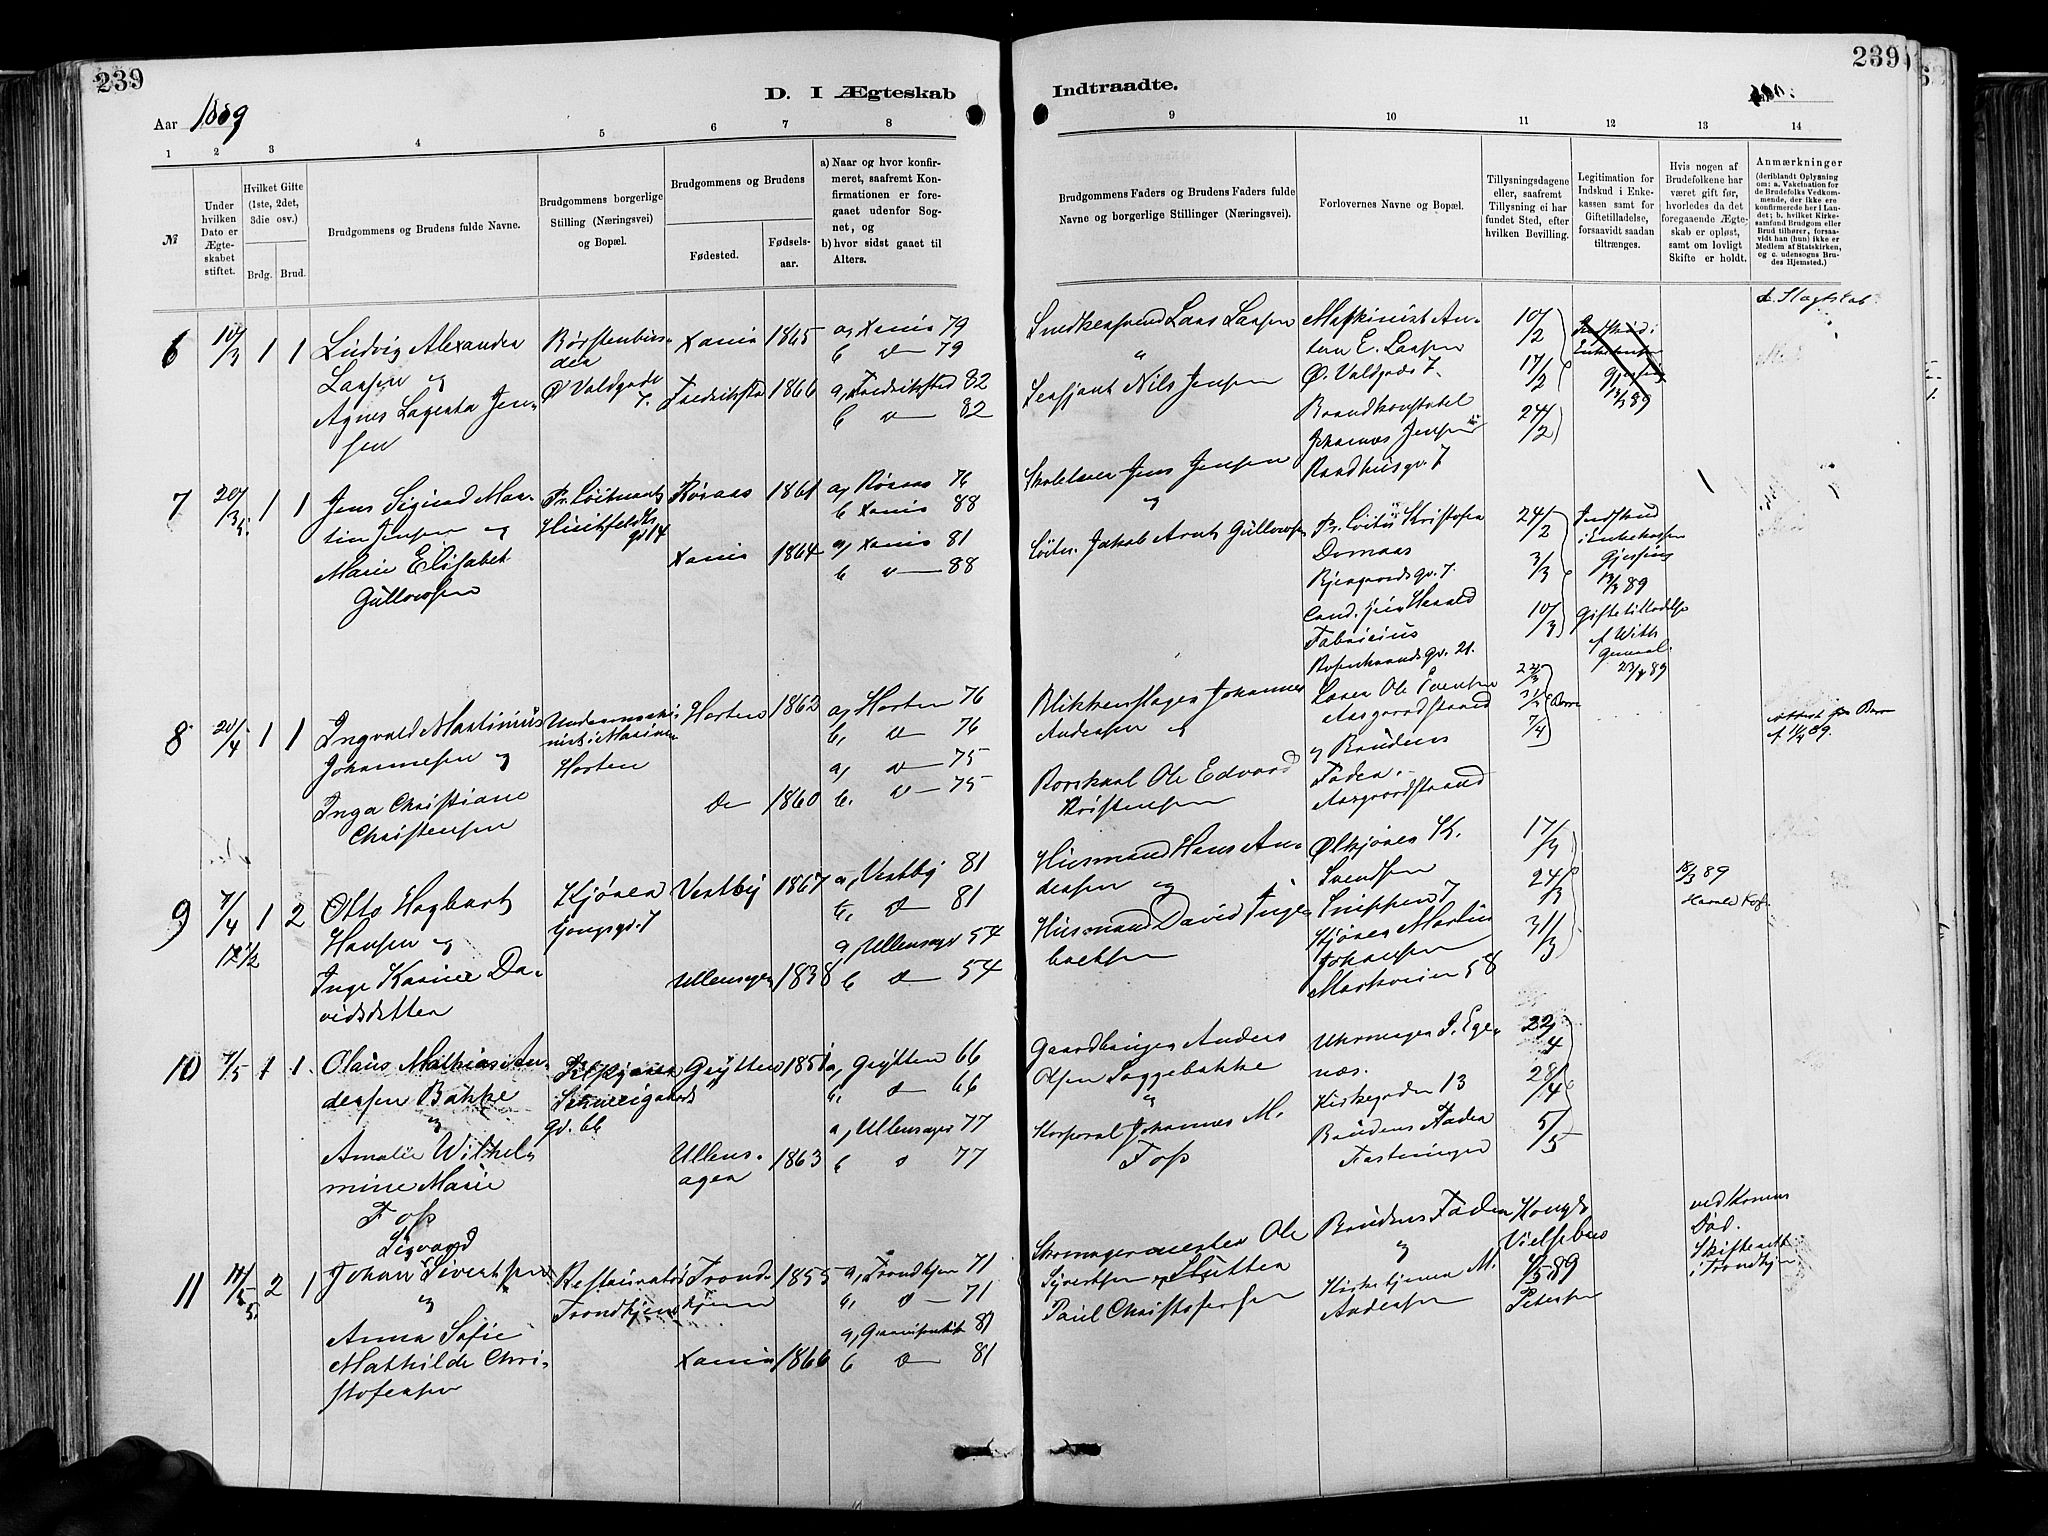 239
239
D. I Ægteskab
Indtraadte.
Aar 1889
1 2 3 4 5 6 7 8
9 10 11 12 13 14
№
Under hvilken Dato er Ægteskabet stiftet.
Hvilket Gifte (1ste, 2det, 3die osv.)
Brdg. Brud.
Brudgommens og Brudens fulde Navne.
Brudgommens borgerlige Stilling (Næringsvei) og Bopæl.
Brudgommens og Brudens
Fødested.
Fødselsaar.
a) Naar og hvor konfirmeret, saafremt Konfirmationen er foregaaet udenfor Sognet, og
b) hvor sidst gaaet til Alters.
Brudgommens Faders og Brudens Faders fulde Navne og borgerlige Stillinger (Næringsvei).
Forlovernes Navne og Bopæl.
Tillysningsdagene eller, saafremt Tillysning ei har fundet Sted, efter hvilken Bevilling.
Legitimation for Indskud i Enkekassen samt for Giftetilladelse, forsaavidt saadan tiltrænges.
Hvis nogen af Brudefolkene har været gift før, hvorledes da det foregaaende Ægteskab er opløst, samt om lovligt Skifte er holdt.
Anmærkninger
(deriblandt Oplysning om: a. Vakcination for de Brudefolks Vedkommende, der ikke ere konfirmerede her i Landet; b. hvilket Kirkesamfund Brudgom eller Brud tilhører, forsaavidt han (hun) ikke er Medlem af Statskirken, og c. udensogns Brudes Hjemsted.)
6 10/3 1 1
Ludvig Alexander
Larsen og
Agnes Lagerta Jen-
sen
Børstenbin-
der
Ø Voldgade
7.
Xania 1865
Fredriksta 1866
a, Xania 79
b do 79
a, Fredriksstad 82
b do 82
Smedsvend Lars Larsen
Sersjant Nils Jensen
Maskinist An-
ton E. Larsen
Ø. Voldgade 7.
Brandkonstabel
Johannes Jensen
Raadhusgd. 7
10/2
17/2
24/2
Indskud i
Enkekassen
Gjessing
13/3 89
7 20/3 1 1
Jens Sigurd Mar-
tin Jensen og
Marie Elisabet
Gullowsen
Pr. Løitnant
Huitfeldts
gd 14
Røraas 1861
Xania 1864
a, Røraas 76
b Xania 88
a, Xania 81
b do 88
Skolelærer Jens Jensen
og
Løitn. Jakob Arnt Gullowsen
Pr. Løitn Kristofer
Dornaas
Bjergaards gd. 7.
Cand. jur. Harald
Fabricius
Rosenkrands gd. 21.
24/2
3/3
10/3
Indskud
i Enkekassen
Gjessing
13/3 89
Giftetilladelse
General.
8 20/4 1 1
Ingvald Martinius
Johannesen og
Inga Christiane
Christensen
Undermaski-
nist i Marinen
Horten
Horten 1862
do 1860
a, Horten 76
b, do 76
a, do 75
b, do 75
Blikkenslager Johannes
Andersen og
Ole Edvard
Kristensen
Ole Evensen
Aasgaardstrand
og Brudens
Fader.
Aasgaardstrand
7/4
Borre
Attest fra Borre
9 7/4 1 2
12 1/2
Otto Hagbart
Hansen og
Inge Karine Da-
vidsdatter
Kjører
gd. 7
Vestby 1867
Ullensager 1838
a, Vestby 81
b, do 81
a, Ullensager 54
b do 54
Husmand Hans An-
dersen og
Husmand David Inge-
bretsen
Ølkjører K.
Svendsen
Snippen 7
Kjører Martin
Johansen
Markveien 58
17/3
24/3
31/3
18/3 89
10 7/5 1 1.
Olaus Mathias An-
dersen Bakke
og
Amalie Wilhel-
mine Marie
Foss
gd. 66
Grytten 1851
Ullens-
ager 1863
a, Grytten 66
b, do 66
a, Ullensager 77
b do 77
Gaardbruger Anders
Olsen Soggebakke
og
Korporal Johannes M.
Foss
Uhrmager I. Ege-
næs.
Kirkegaden 13
Brudens Fader
28/4
5/5
11 2 1
Sigvard
Johan Sivertsen
og
Anna Sofie
Mathilde Chri-
stofersen
Restauratør
Trondhjem
Trond-
hjem 1855
Xania 1866
a, Trondhjem 71
b, do 71
a,
b do 81
Skomagermester Ole
Syvertsen
Paul Christofersen
Brudens Fader
og
Kirketjener M.
Andersen
Kongl.
Vielsebrev
Petersen
ved Konens
Død.
Skifteret
i Trondhjem